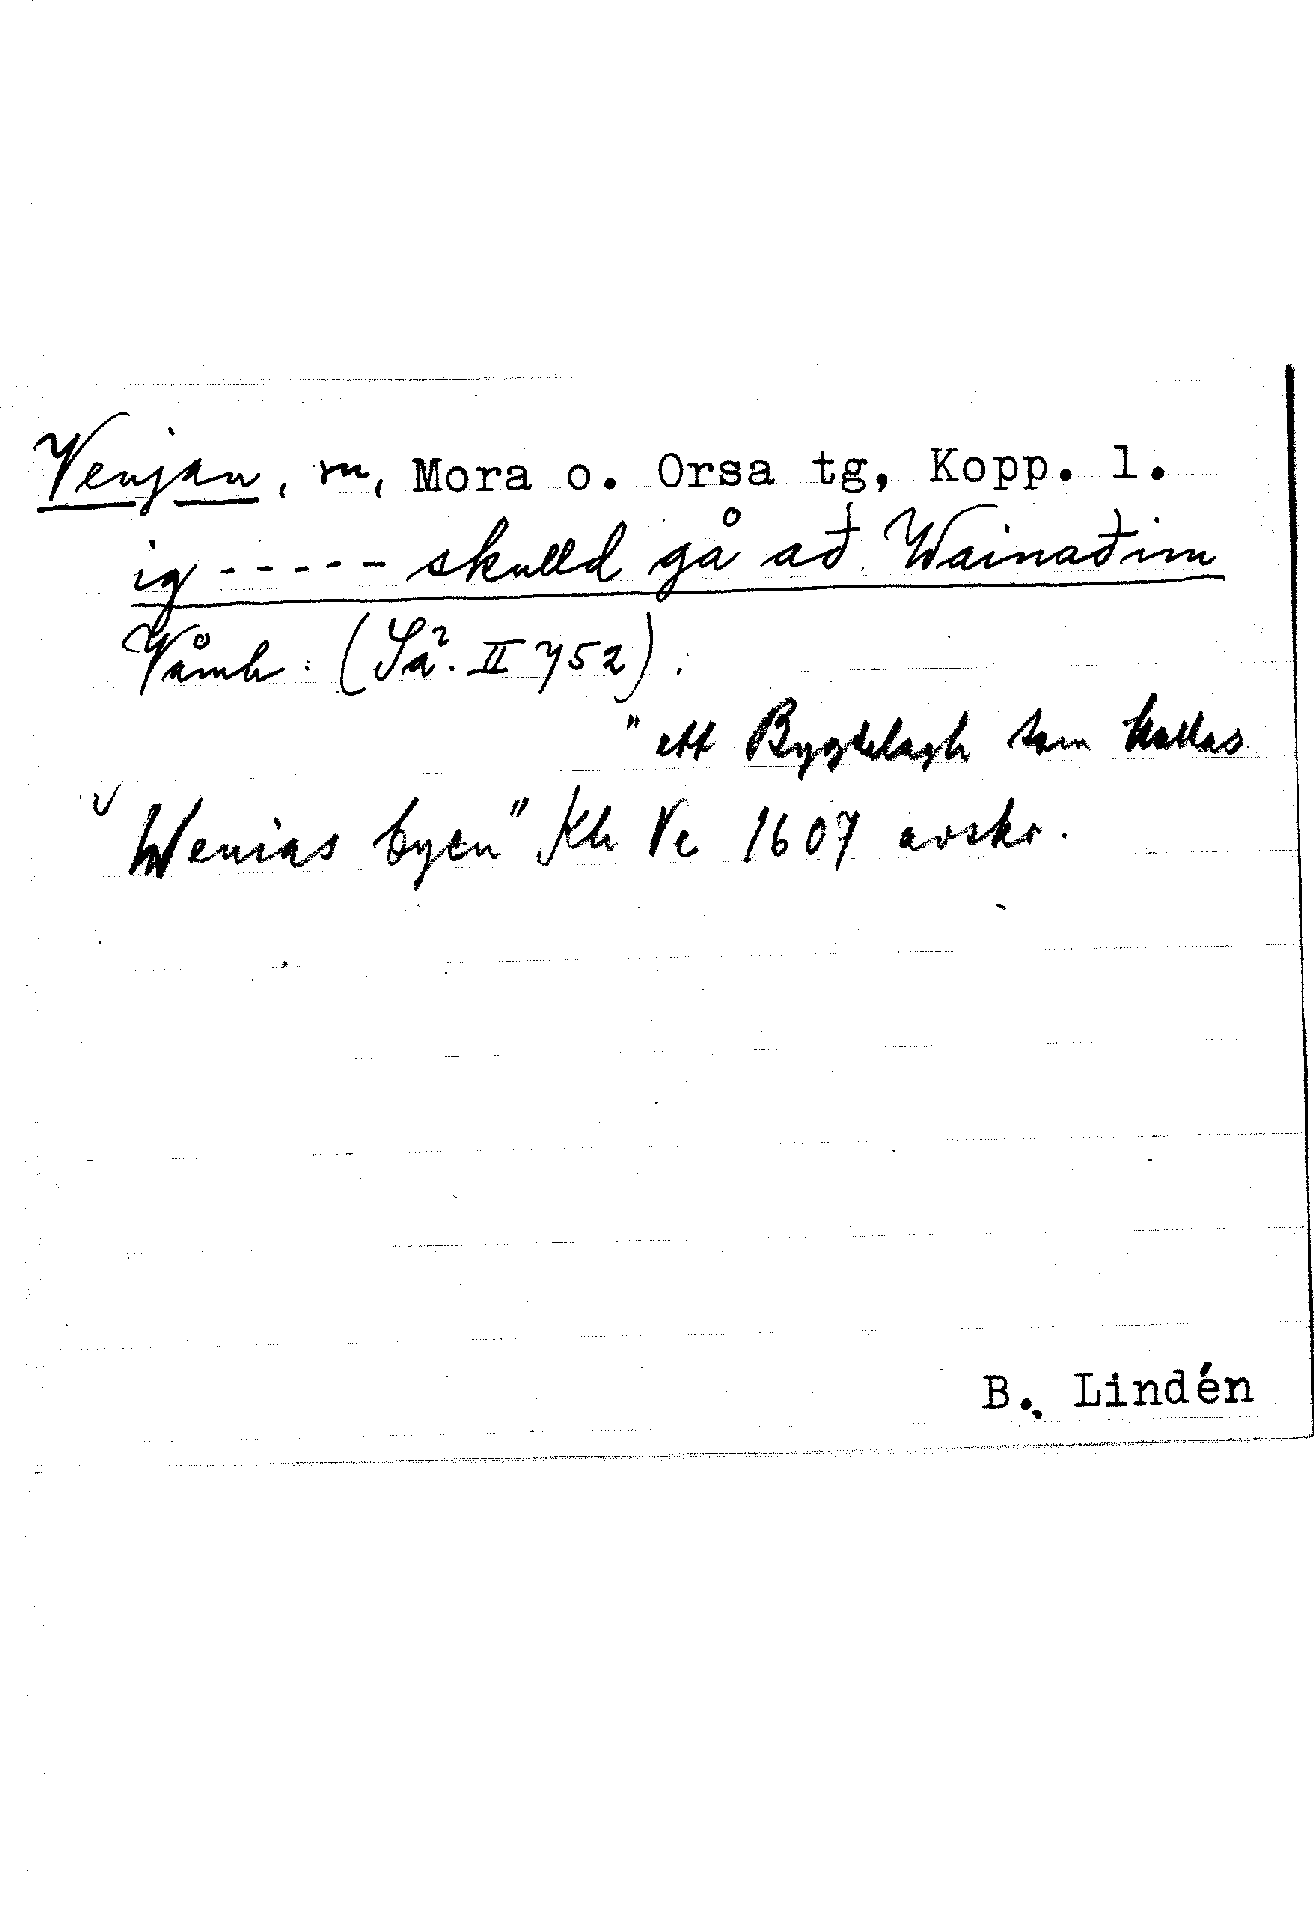 Venjan, sn, Mora o. Orsa tg, Kopp. l.
ig ----- skulld gå að Wainaðim
Våmh. (Sä². II 752).
"ett Bygdelagh som kallas
v Wenias byen" Kh Ve 1607 avskr.
B. Lindén